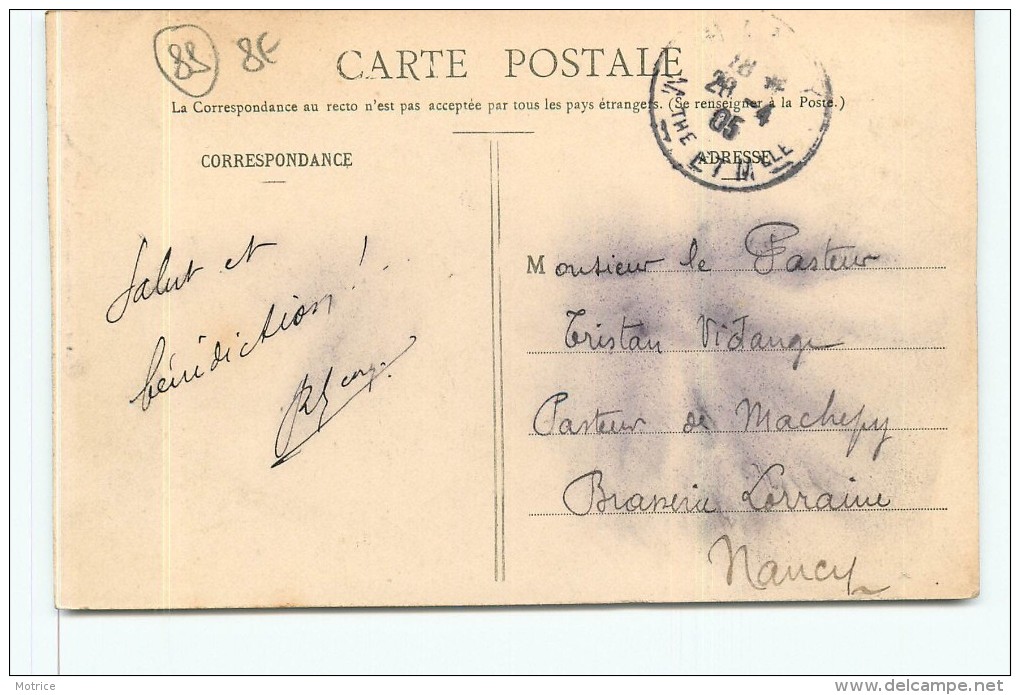 88 8€
CARTE POSTALE
La Correspondance au recto n'est pas acceptée par tous les pays étrangers. (Se renseigner à la Poste.)
18
28 -4
05
MTHE ET MELLE
CORRESPONDANCE
ADRESSE
Salut et
bénédiction !
Monsieur le Pasteur
Tristan Vidange
Pasteur de Machepy
Brasserie Lorraine
Nancy
Motrice
www.delcampe.net